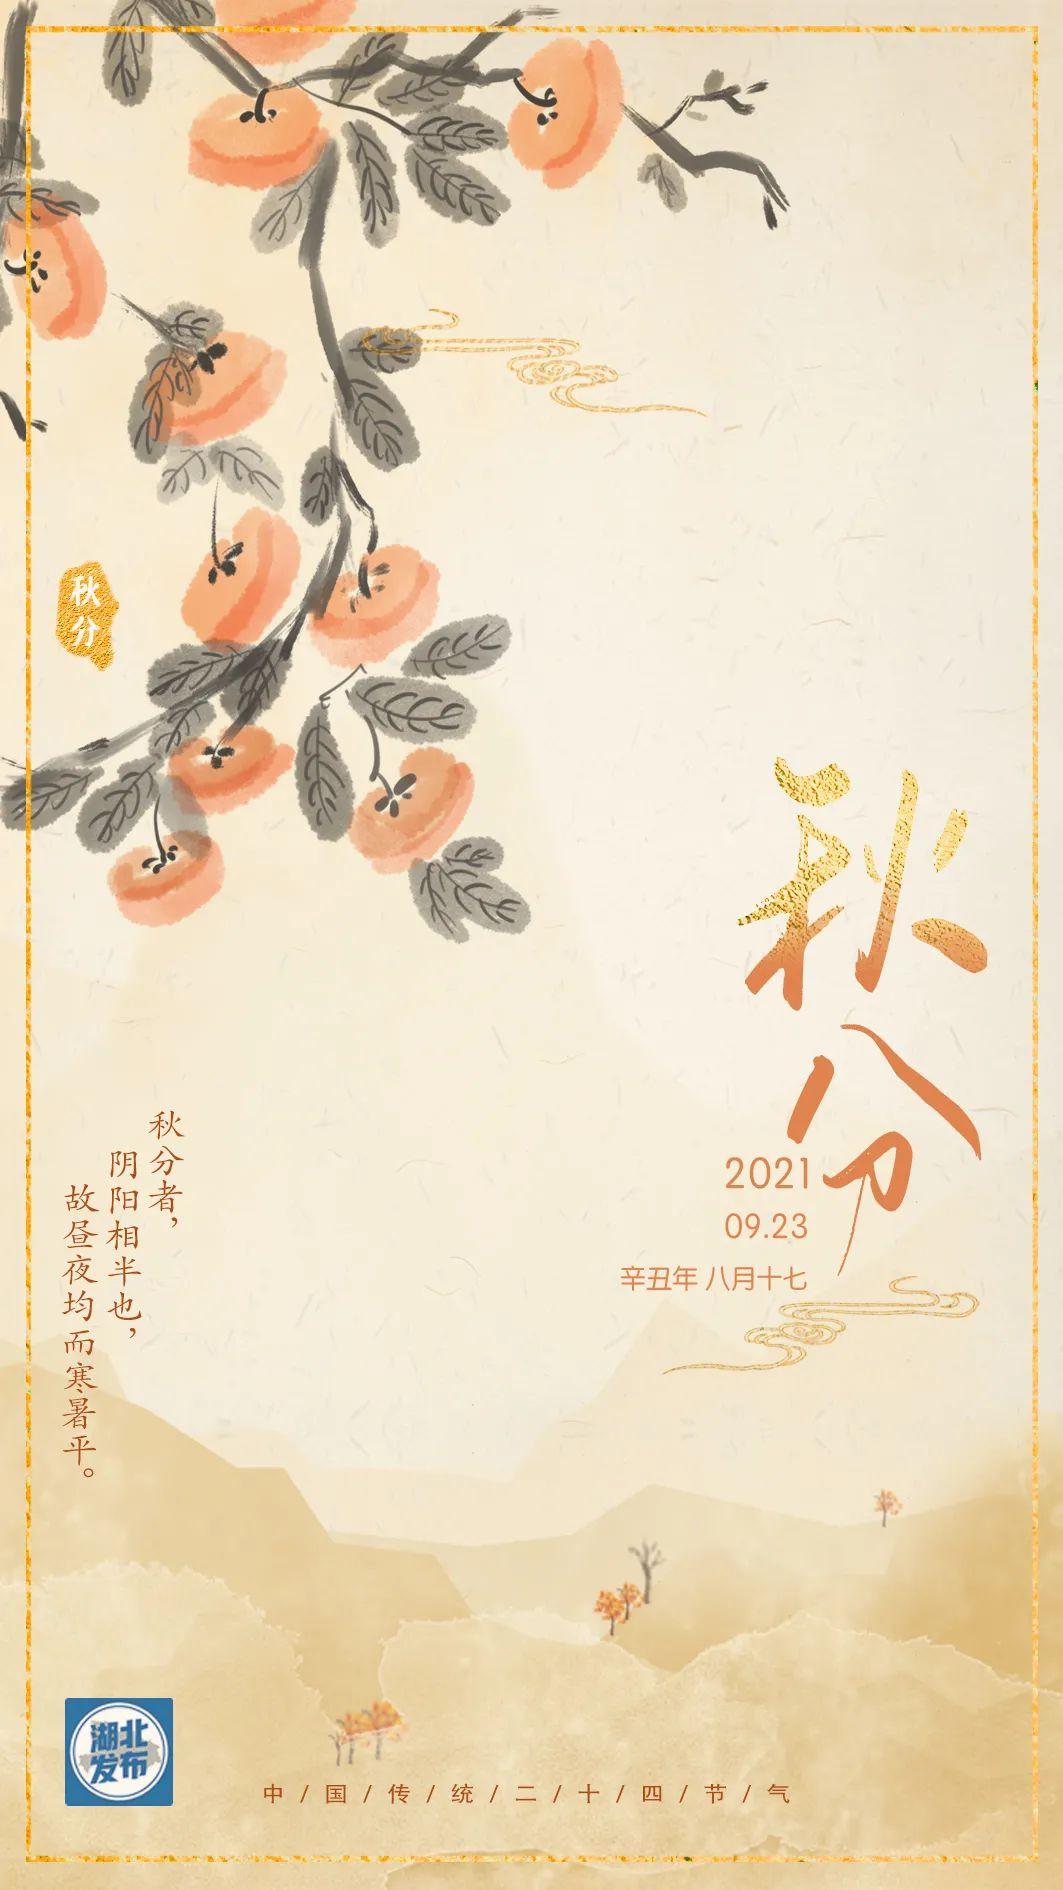 秋分
秋分
2021
09.23
辛丑年 八月十七
秋分者，
阴阳相半也，
故昼夜均而寒暑平。
湖北
发布
中/国/传/统/二/十/四/节/气